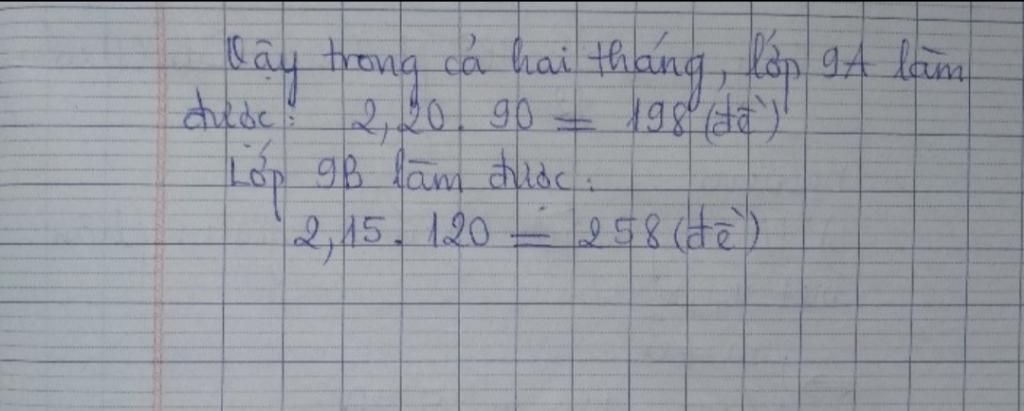 Vậy trong cả hai tháng, lớp 9A làm
được: 2,20. 90 = 198 (đề)
Lớp 9B làm được:
2,15. 120 = 258 (đề)